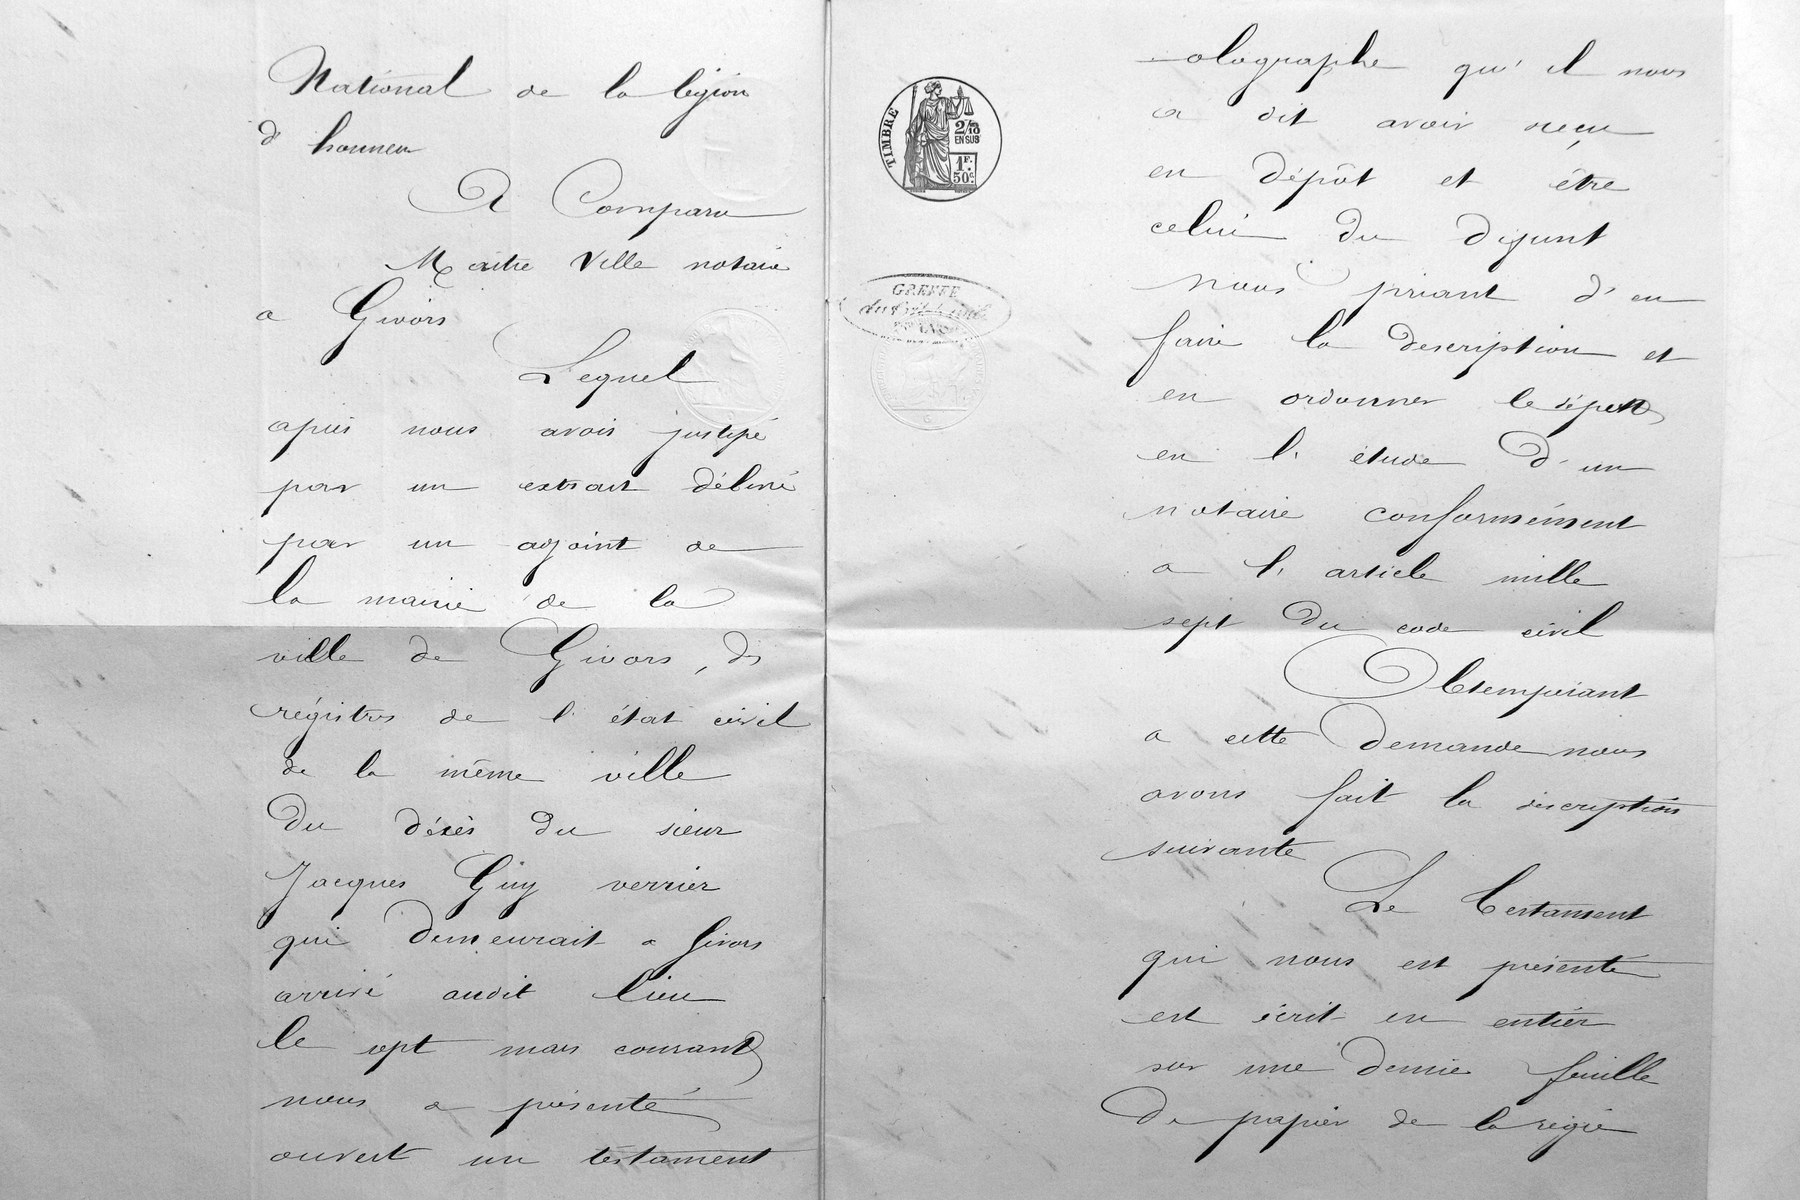 National de la légion
d honneur
A Comparu
Maitre Ville notaire
a Givors
Lequel
après nous avoir justifié
par un extrait délivré
par un adjoint de
la mairie de la
ville de Givors, ds
régistres de l'état civil
de la même ville
Du décès du sieur
Jacques Guy verrier
qui demeurait a Givors
arrivé audit lieu
le sept mars courant
nous a présenté
ouvert un testament
TIMBRE
2/10
EN SUS
1F.
50c.
GREFFE
olographe qu'il nous
a dit avoir reçu
en dépôt et être
celui du défunt
nous priant d'en
faire la description et
en ordonner le dépot
en l'étude d'un
notaire conformément
a l'article mille
sept du code civil
Obtempérant
a cette demande nous
avons fait la description
suivante
Le testament
qui nous est présenté
est écrit en entier
sur une demie feuille
De papier de la régie